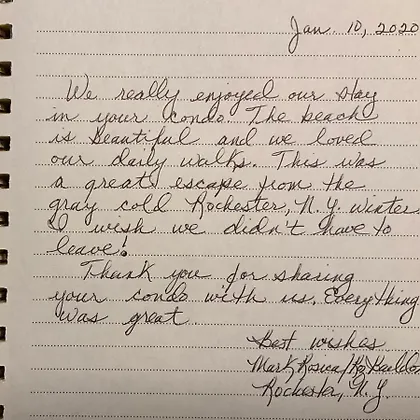 Jan. 10, 2020
We really enjoyed our stay
in your condo. The beach
is beautiful and we loved
our daily walks. This was
a great escape from the
gray cold Rochester, N.Y. winter.
I wish we didn't have to
leave!
Thank you for sharing
your condo with us. Everything
was great.
Best wishes
Mark
Rochester, N.Y.